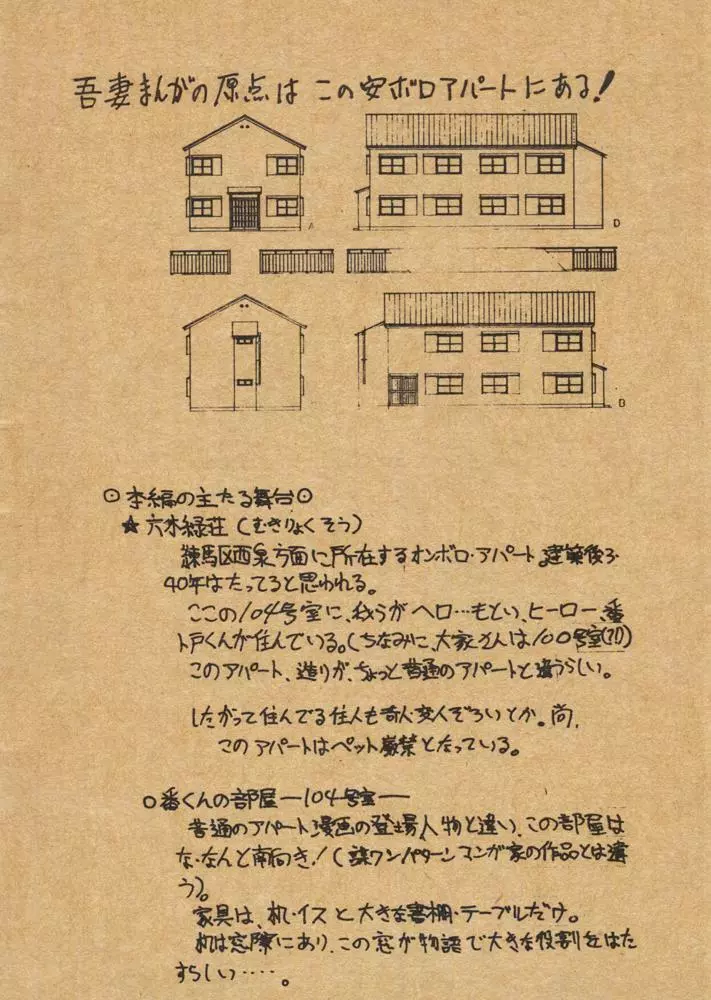 吾妻まんがの原点は この安ボロアパートにある!
A
D
B
⊙本編の主たる舞台⊙
★六木緑荘(むきりょくそう)
練馬区西泉方面に所在するオンボロ・アパート。建築後30〜
40年はたってると思われる。
ここの104号室に、我らがヘロ…もとい、ヒーロー、番
戸くんが住んでいる。(ちなみに、大家さんは100号室(?!))
このアパート、造りが、ちょっと普通のアパートと違うらしい。
したがって住んでる住人も奇人・変人ぞろいとか。尚、
このアパートはペット厳禁となっている。
○番くんの部屋―104号室―
普通のアパート漫画の登場人物と違い、この部屋は
な・なんと南向き!(某ワンパターンマンガ家の作品とは違
う)。
家具は、机・イスと大きな書棚・テーブルだけ。
机は窓際にあり、この窓が物語で大きな役割をはた
すらしい……。